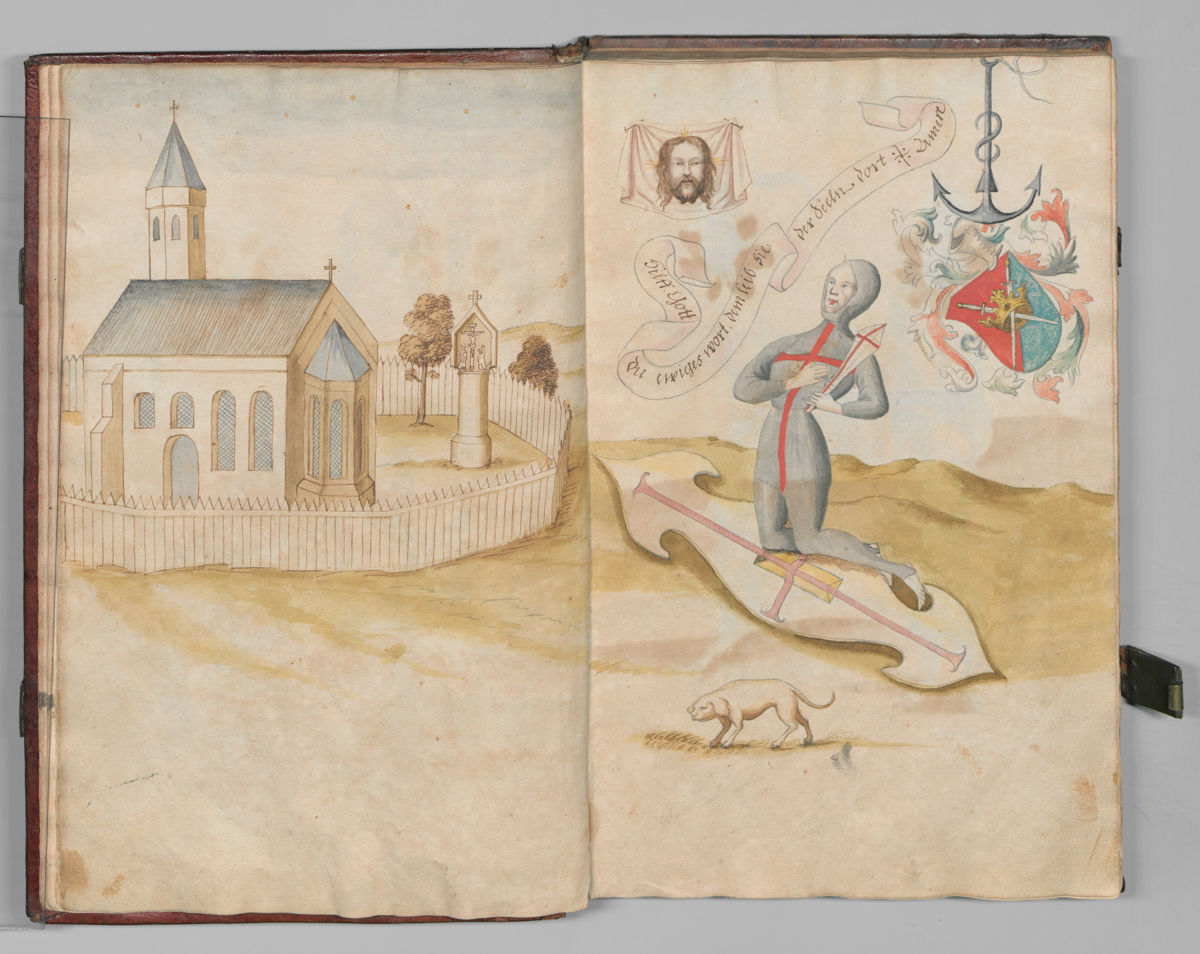 Hilff Gott
du ewiges wort dem leib hie
der Seeln dort Amen